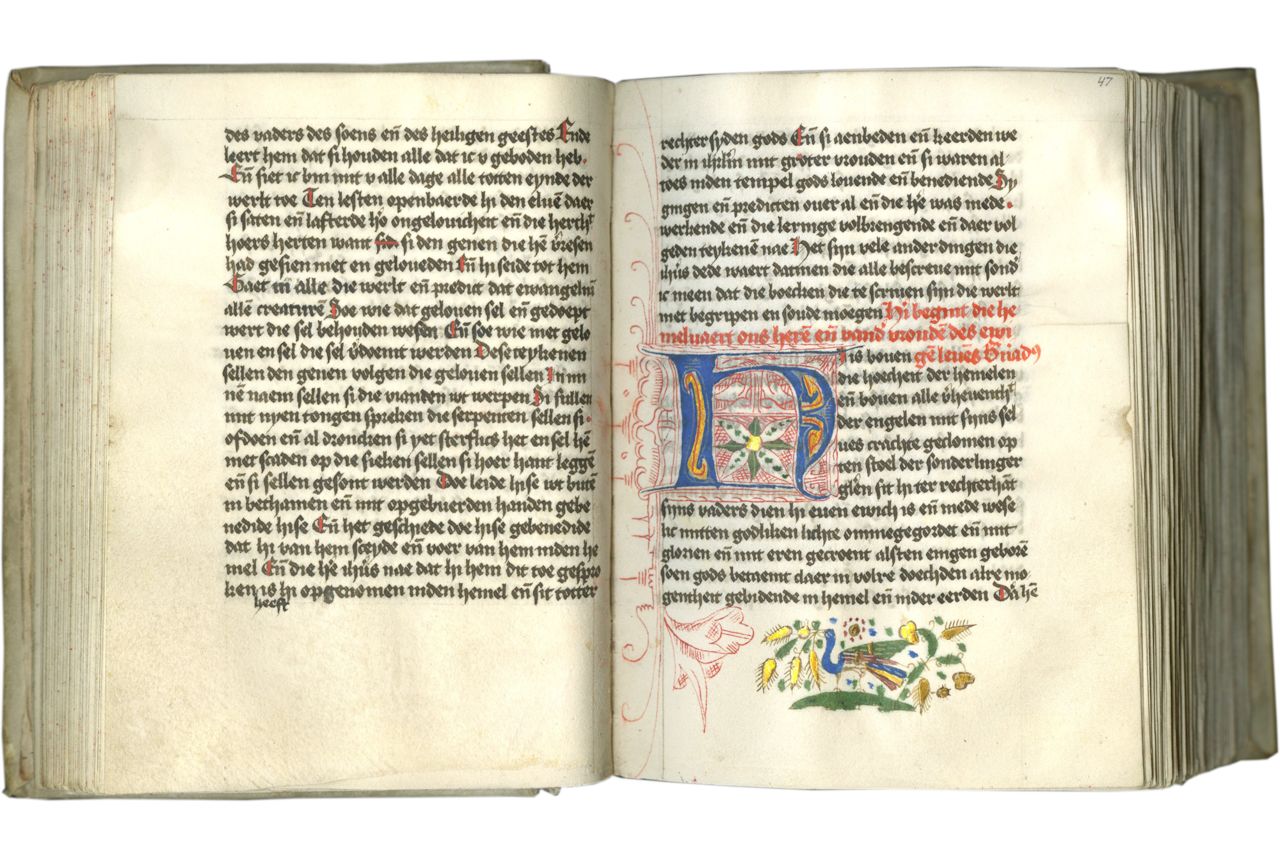 des vaders des soens en̄ des heiligen geestes Ende
leert hem dat si houden alle dat ic v geboden heb.
En̄ siet ic bin mit v alle dage alle totten eynde der
werlt toe Ten lesten openbaerde hi den eluē daer
si saten en̄ lasterde hoer ongelouicheit en̄ die herthꝫ
hoers herten want si den genen die hē v̄resen
had gesien niet en geloueden En̄ hi seide tot hem
Gaet in alle die werlt en̄ predict dat ewangeliū
allē creaturē Soe wie dat gelouen sel en̄ gedoept
wert die sel behouden wesen En̄ soe wie niet gelo
uen en sel die sel v̄doemt werden Dese teykenen
sellen den genen volgen die gelouen sellen In mi
nē naem sellen si die vianden wt werpen Si sullen
mit nyen tongen spreken die serpenten sellen si
ofdoen en̄ al droncken si yet sterflics het en sel hē
niet scaden op die sieken sellen si hoer hant leggē
en̄ si sellen gesont werden Doe leide hise wt butē
in bethanien en̄ mit opgebuerden handen gebe
nedide hise En̄ het geschiede doe hise gebenedide
dat hi van hem sceyde en̄ voer van hem inden he
mel En̄ die hē ihūs nae dat hi hem dit toe gespro
ken is hi opgenomen inden hemel en̄ sit totter
heeft
47
rechter syden gods En̄ si aenbeden en̄ keerden we
der in ihrlm mit groter vrouden en̄ si waren al
toes inden tempel gods louende en̄ benediende Sy
gingen en̄ predicten ouer al en̄ die hē was mede
werkende en̄ die leringe volbrengende en̄ daer vol
geden teykenē nae Het sijn vele ander dingen die
ihūs dede waert datmen die alle bescreue mit sond̄
ic meen dat die boecken die te scriuen sijn die werlt
niet begripen en soude moegen Hi begint die he
melvaert ons herē en̄ vand̄ vroudē des ewi
His bouen gē leues
die hoecheit der hemelen
en̄ bouen alle
der engelen mit sijns sel
ues crachte geclomen op
ten stoel der sonderlinger
glēn sit hi ter rechterhāt
sijns vaders dien hi euen ewich is en̄ mede wese
lic mitten godliken lichte ommegegordet en̄ mit
glorien en̄ mit eren gecroent alsten enigen geborē
soen gods betaemt daer in volre doechden alre mo
gentheit gebidende in hemel en̄ inder eerden Dā hē